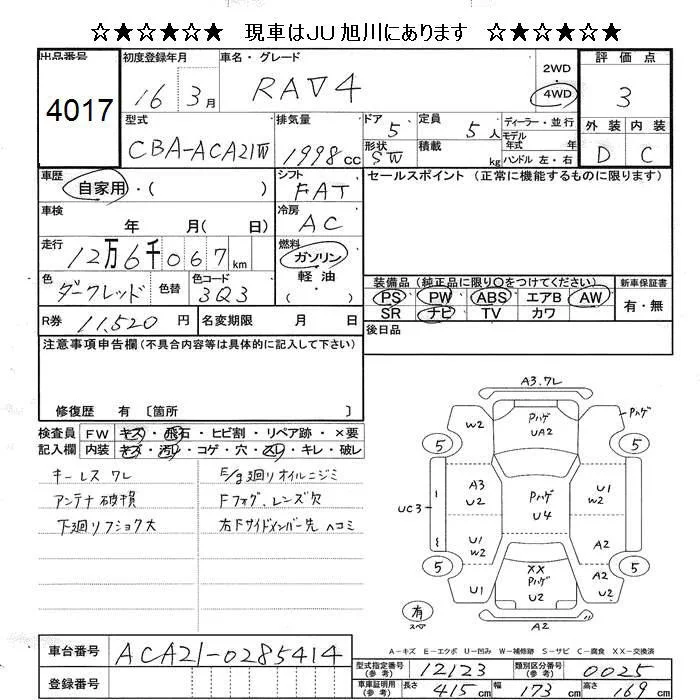 ☆★☆★☆★☆ 現車はJU旭川にあります ☆★☆★☆★☆
出品番号 初度登録年月 車名・グレード 2WD 評価点
4017 16 3月 RAV4 4WD 3
型式 排気量 ドア 定員 ディーラー・並行 外装 内装
CBA-ACA21W 1998cc 5 5人 モデル年式 年式 D C
形状 SW 積載 kg ハンドル 左・右
車歴 シフト セールスポイント (正常に機能するものに限ります)
自家用・( ) FAT
車検 年 月( 日) 冷房 AC
走行 12万6千067km 燃料 ガソリン
軽油・( )
色 ダークレッド 色替 色コード 3Q3
装備品 (純正品に限り○をつけてください) 新車保証書
PS PW ABS エアB AW 有・無
SR ナビ TV カワ
R券 11,520円 名変期限 月 日 後日品
注意事項申告欄(不具合内容等は具体的に記入して下さい)
修復歴 有 〔箇所 〕
検査員 FW キズ・飛石・ヒビ割・リペア跡・×要
記入欄 内装 キズ・汚レ・コゲ・穴・スレ・キレ・破レ
キーレス ワレ E/g廻りオイルニジミ
アンテナ破損 Fフォグ、レンズ欠
下廻りフショク大 右Fサイドメンバー先 ヘコミ
A3.ワレ
W2 Pハゲ UA2 Pハゲ
5 5
A3 U2 Pハゲ U4 U1 W2
UC3
U1 W2 A2
5 XX Pハゲ U2 5
U1 A2 U2
有 スペ A2
A-キズ E-エクボ U-凹み W-補修跡 S-サビ C-腐食 XX-交換済
車台番号 ACA21-0285414
型式指定番号(参考) 12123 類別区分番号(参考) 0025
登録番号
車車証明用(参考) 長さ 415cm 幅 173cm 高さ 169cm